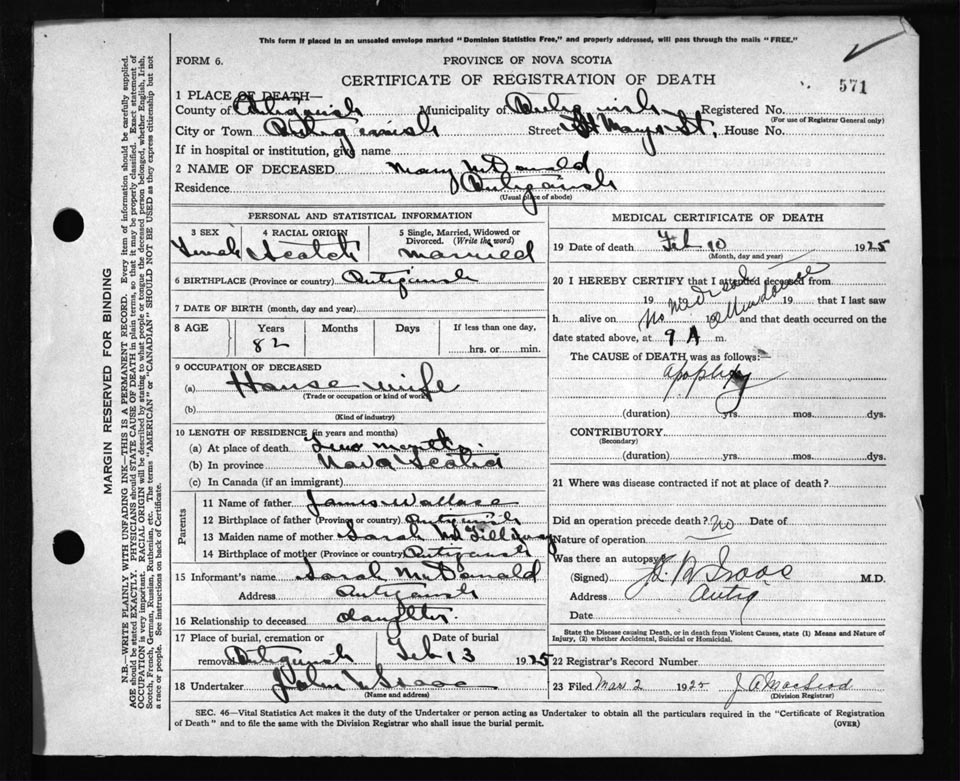 This form if placed in an unsealed envelope marked "Dominion Statistics Free," and properly addressed, will pass through the mails "FREE."
FORM 6.
PROVINCE OF NOVA SCOTIA
CERTIFICATE OF REGISTRATION OF DEATH
571
1 PLACE OF DEATH—
County of Antigonish Municipality of Antigonish Registered No.
(For use of Registrar General only)
City or Town Antigonish Street St Marys St. House No.
If in hospital or institution, give name
2 NAME OF DECEASED Mary McDonald
Residence Antigonish
(Usual place of abode)
PERSONAL AND STATISTICAL INFORMATION
3 SEX 4 RACIAL ORIGIN 5 Single, Married, Widowed or Divorced. (Write the word)
Female Scotch Married
6 BIRTHPLACE (Province or country) Antigonish
7 DATE OF BIRTH (month, day and year)
8 AGE Years Months Days If less than one day,
82 hrs. or min.
9 OCCUPATION OF DECEASED
(a) House wife
(Trade or occupation or kind of work)
(b)
(Kind of industry)
10 LENGTH OF RESIDENCE (in years and months)
(a) At place of death
(b) In province Nova Scotia
(c) In Canada (if an immigrant)
Parents
11 Name of father James Wallace
12 Birthplace of father (Province or country) Antigonish
13 Maiden name of mother Sarah McGillivray
14 Birthplace of mother (Province or country) Antigonish
15 Informant's name Sarah McDonald
Address Antigonish
16 Relationship to deceased daughter
17 Place of burial, cremation or removal Date of burial
Antigonish Feb 13 1925
18 Undertaker John Isaac
(Name and address)
MEDICAL CERTIFICATE OF DEATH
19 Date of death Feb 10 1925
(Month, day and year)
20 I HEREBY CERTIFY that I attended deceased from
19 no medical attendance 19 that I last saw
h alive on 19 and that death occurred on
date stated above, at 9 A m.
The CAUSE of DEATH was as follows:
apoplexy
(duration) yrs. mos. dys.
CONTRIBUTORY
(Secondary)
(duration) yrs. mos. dys.
21 Where was disease contracted if not at place of death?
Did an operation precede death? no Date of
Nature of operation
Was there an autopsy
(Signed) Isaac M.D.
Address Antig
Date
State the Disease causing Death, or in death from Violent Causes, state (1) Means and Nature of
Injury, (2) whether Accidental, Suicidal or Homicidal.
22 Registrar's Record Number
23 Filed Mar 2 1925 J. A. MacLeod
(Division Registrar)
SEC. 46—Vital Statistics Act makes it the duty of the Undertaker or person acting as Undertaker to obtain all the particulars required in the "Certificate of Registration
of Death" and to file the same with the Division Registrar who shall issue the burial permit.
(OVER)
MARGIN RESERVED FOR BINDING
N.B.—WRITE PLAINLY WITH UNFADING INK—THIS IS A PERMANENT RECORD. Every item of information should be carefully supplied.
AGE should be stated EXACTLY. PHYSICIANS should STATE CAUSE OF DEATH in plain terms, so that it may be properly classified. Exact statement of
OCCUPATION is very important. RACIAL ORIGIN will be described by stating to what people or tongue the deceased person belonged, whether English, Irish,
Scotch, French, German, Russian, Ruthenian, etc. The terms "AMERICAN" or "CANADIAN" SHOULD NOT BE USED as they express citizenship but not
a race or people. See instructions on back of Certificate.